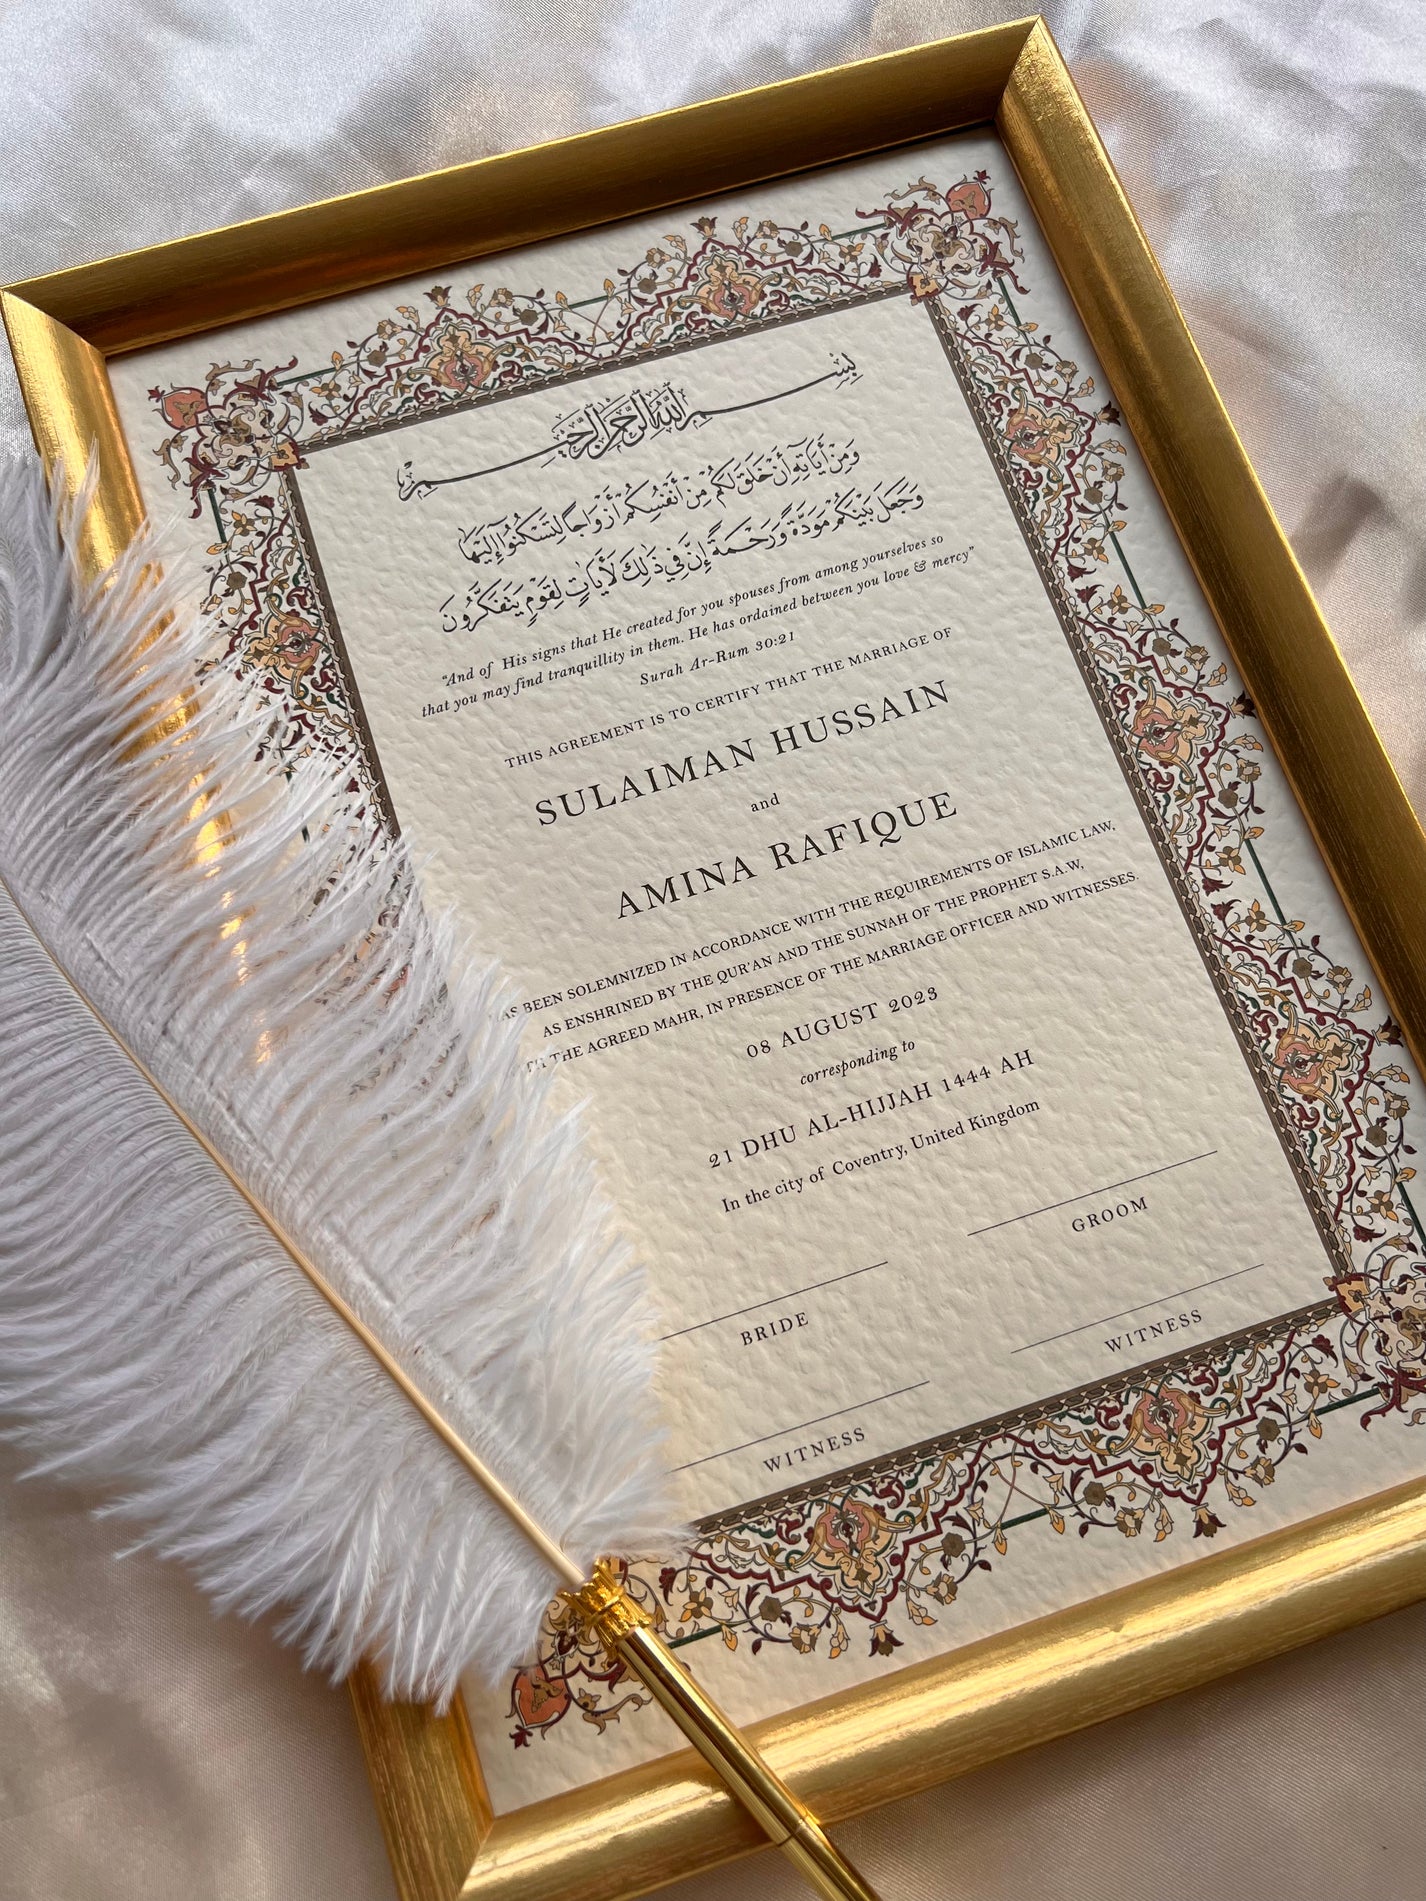 بِسْمِ اللَّهِ الرَّحْمَنِ الرَّحِيمِ
وَمِنْ أَيَاتِهِ أَنْ خَلَقَ لَكُم مِنْ أَنْفُسِكُمْ أَزْوَاجًا لِتَسْكُنُوا إِلَيْهَا
وَجَعَلَ بَيْنَكُمْ مَوَدَّةً وَرَحْمَةً إِنَّ فِي ذَٰلِكَ لَأَيَاتٍ لِقَوْمٍ يَتَفَكَّرُونَ
“And of His signs that He created for you spouses from among yourselves so
that you may find tranquillity in them. He has ordained between you love & mercy”
Surah Ar-Rum 30:21
THIS AGREEMENT IS TO CERTIFY THAT THE MARRIAGE OF
SULAIMAN HUSSAIN
and
AMINA RAFIQUE
AS BEEN SOLEMNIZED IN ACCORDANCE WITH THE REQUIREMENTS OF ISLAMIC LAW,
AS ENSHRINED BY THE QUR'AN AND THE SUNNAH OF THE PROPHET S.A.W,
THE AGREED MAHR, IN PRESENCE OF THE MARRIAGE OFFICER AND WITNESSES.
08 AUGUST 2023
corresponding to
21 DHU AL-HIJJAH 1444 AH
In the city of Coventry, United Kingdom
GROOM
BRIDE
WITNESS
WITNESS